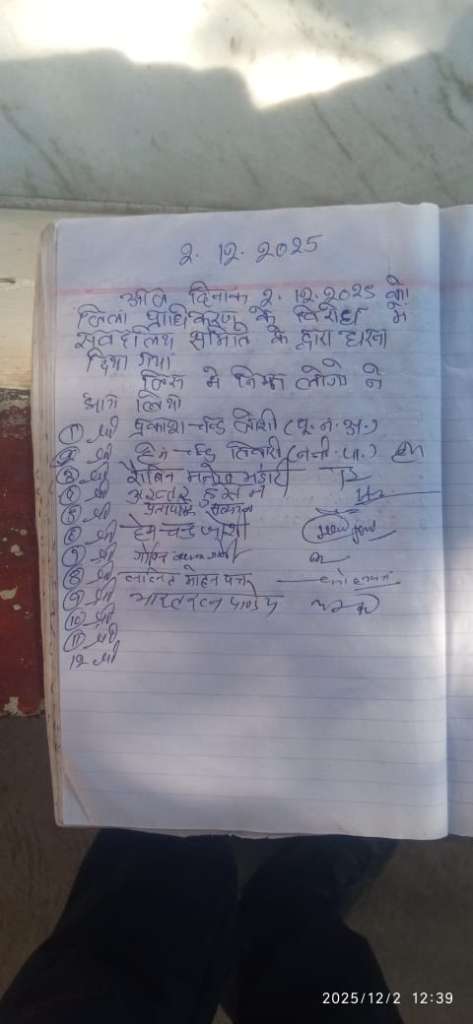 2. 12. 2025
आज दिनांक 2. 12. 2025 को
जिला प्राधिकरण के विरोध में
सर्वदलिय समिति के द्वारा धरना
दिया गया
जिस मे निम्न लोगो ने
भाग लिया
① श्री प्रकाश चन्द्र जोशी (पू. न. अ.)
② श्री चन्द्र तिवारी
③ श्री रोबिन मनोज भंडारी
④ श्री अख्तर हुसैन
⑤ श्री
⑥ श्री हेम चन्द्र जोशी
⑦ श्री गोविन्द
⑧ श्री ललित मोहन पन्त
⑨ श्री भारत रत्न पाण्डेय
⑩ श्री
⑪ श्री
12 श्री
2025/12/2 12:39